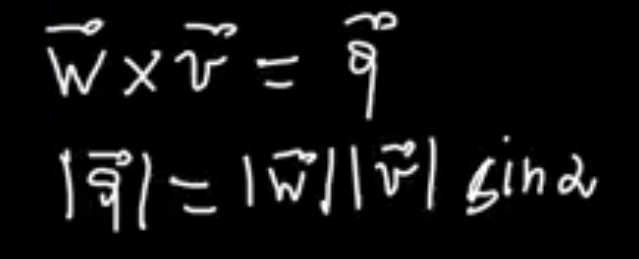 w⃗ × v⃗ = q⃗
|q⃗| = |w⃗||v⃗| sin α